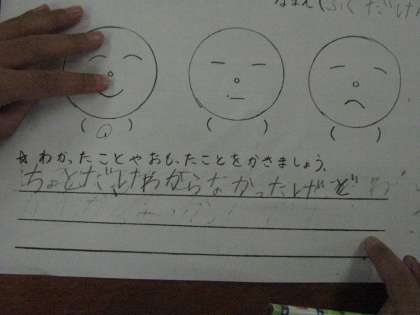 なまえ(ふくだけ
( ) ( ) ( )
☆わかったことやおもったことをかきましょう。
ちょとだけわからなかったけど